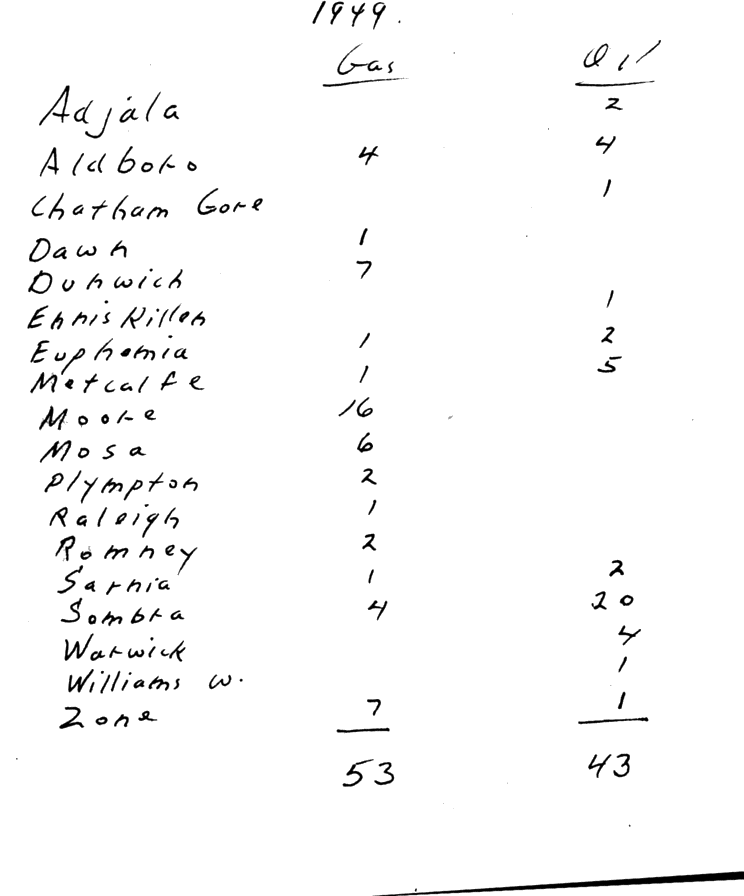 1949.
Gas Oil
Adjala 2
Aldboro 4 4
Chatham Gore 1
Dawn 1
Dunwich 7
Enniskillen 1
Euphemia 1 2
Metcalfe 1 5
Moore 16
Mosa 6
Plympton 2
Raleigh 1
Romney 2
Sarnia 1 2
Sombra 4 20
Warwick 4
Williams W. 1
Zone 7 1
53 43